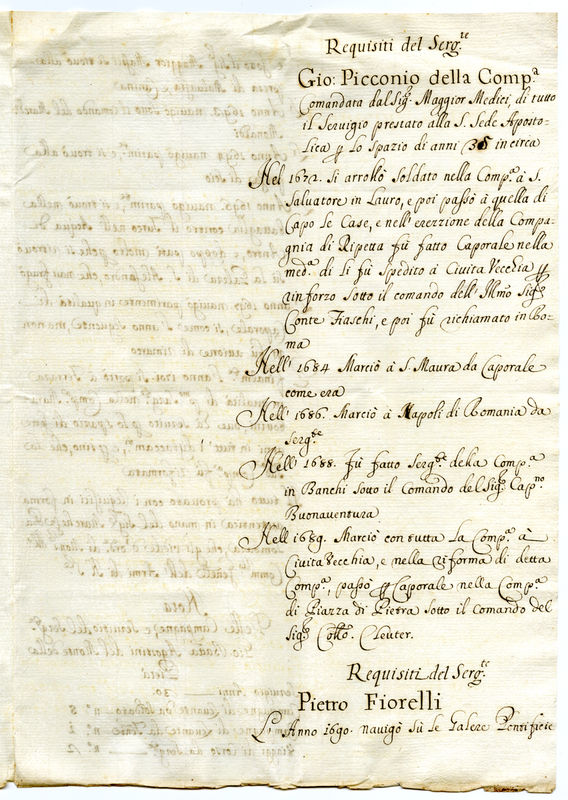 Requisiti del Serg.te
Gio: Picconio della Comp.a
Comandata dal Sig.r Maggior Medici, di tutto
il Servigio prestato alla S. Sede Aposto-
lica p lo Spazio di anni 35 in circa
Nel 1672. Si arrollò Soldato nella Comp.a à S.
Salvatore in Lauro, e poi passò à quella di
Capo le Case, e nell'erezzione della Compa-
gnia di Ripetta fù fatto Caporale nella
med.a di li fù Spedito à Civita Vecchia p
rinforzo sotto il comando dell'Illmo Sig.r
Conte Fiaschi, e poi fù richiamato in Ro-
ma
Nell' 1684 Marciò à S. Maura da Caporale
come era
Nell' 1686. Marciò à Napoli di Romania da
Serg.te
Nell' 1688. Fù fatto Serg.te della Comp.a
in Banchi sotto il Comando del Sig.r Cap.no
Buonaventura
Nell 1689. Marciò con tutta la Comp.a à
Civita Vecchia, e nella riforma di detta
Comp.a, passò p Caporale nella Comp.a
di Piazza di Pietra sotto il Comando del
Sig.r Cleuter.
Requisiti del Serg.te
Pietro Fiorelli
L'Anno 1690. navigò sù le Galere Pontificie